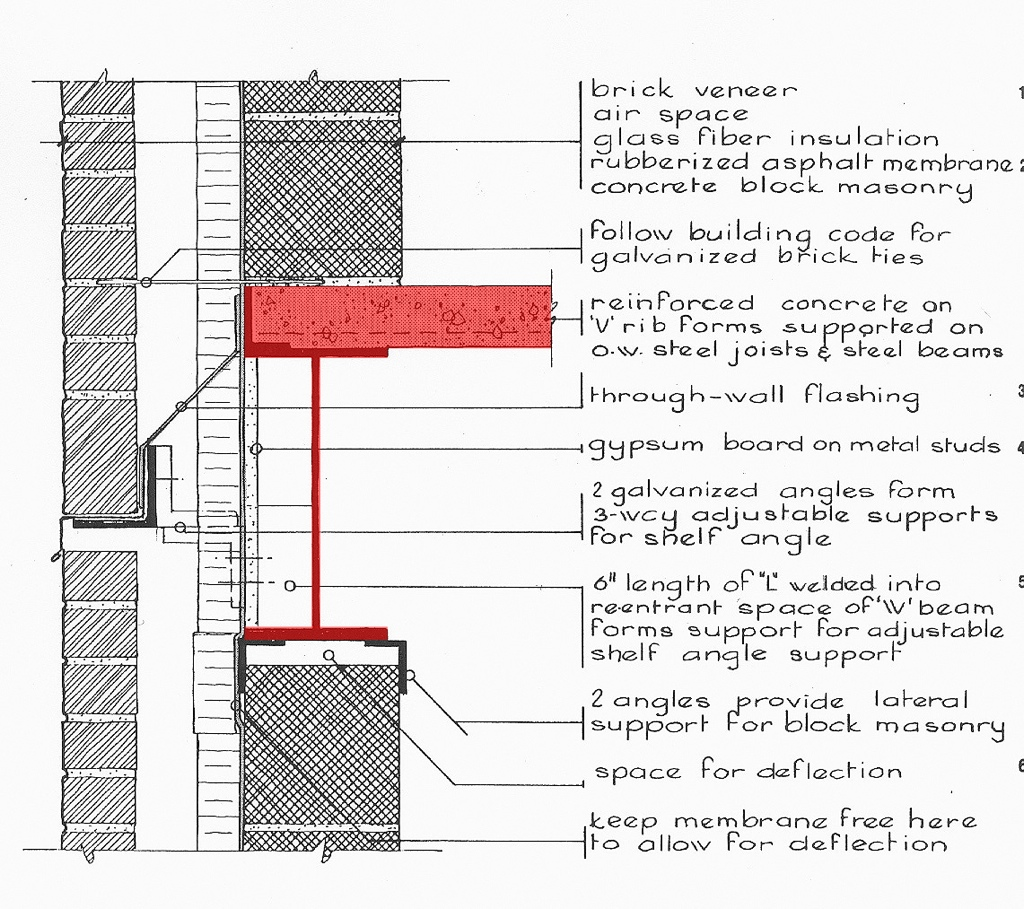 brick veneer
air space
glass fiber insulation
rubberized asphalt membrane
concrete block masonry
follow building code for
galvanized brick ties
reinforced concrete on
'V' rib forms supported on
o.w. steel joists & steel beams
through-wall flashing
gypsum board on metal studs
2 galvanized angles form
3-way adjustable supports
for shelf angle
6" length of "L" welded into
reentrant space of 'W' beam
forms support for adjustable
shelf angle support
2 angles provide lateral
support for block masonry
space for deflection
keep membrane free here
to allow for deflection
1
2
3
4
5
6